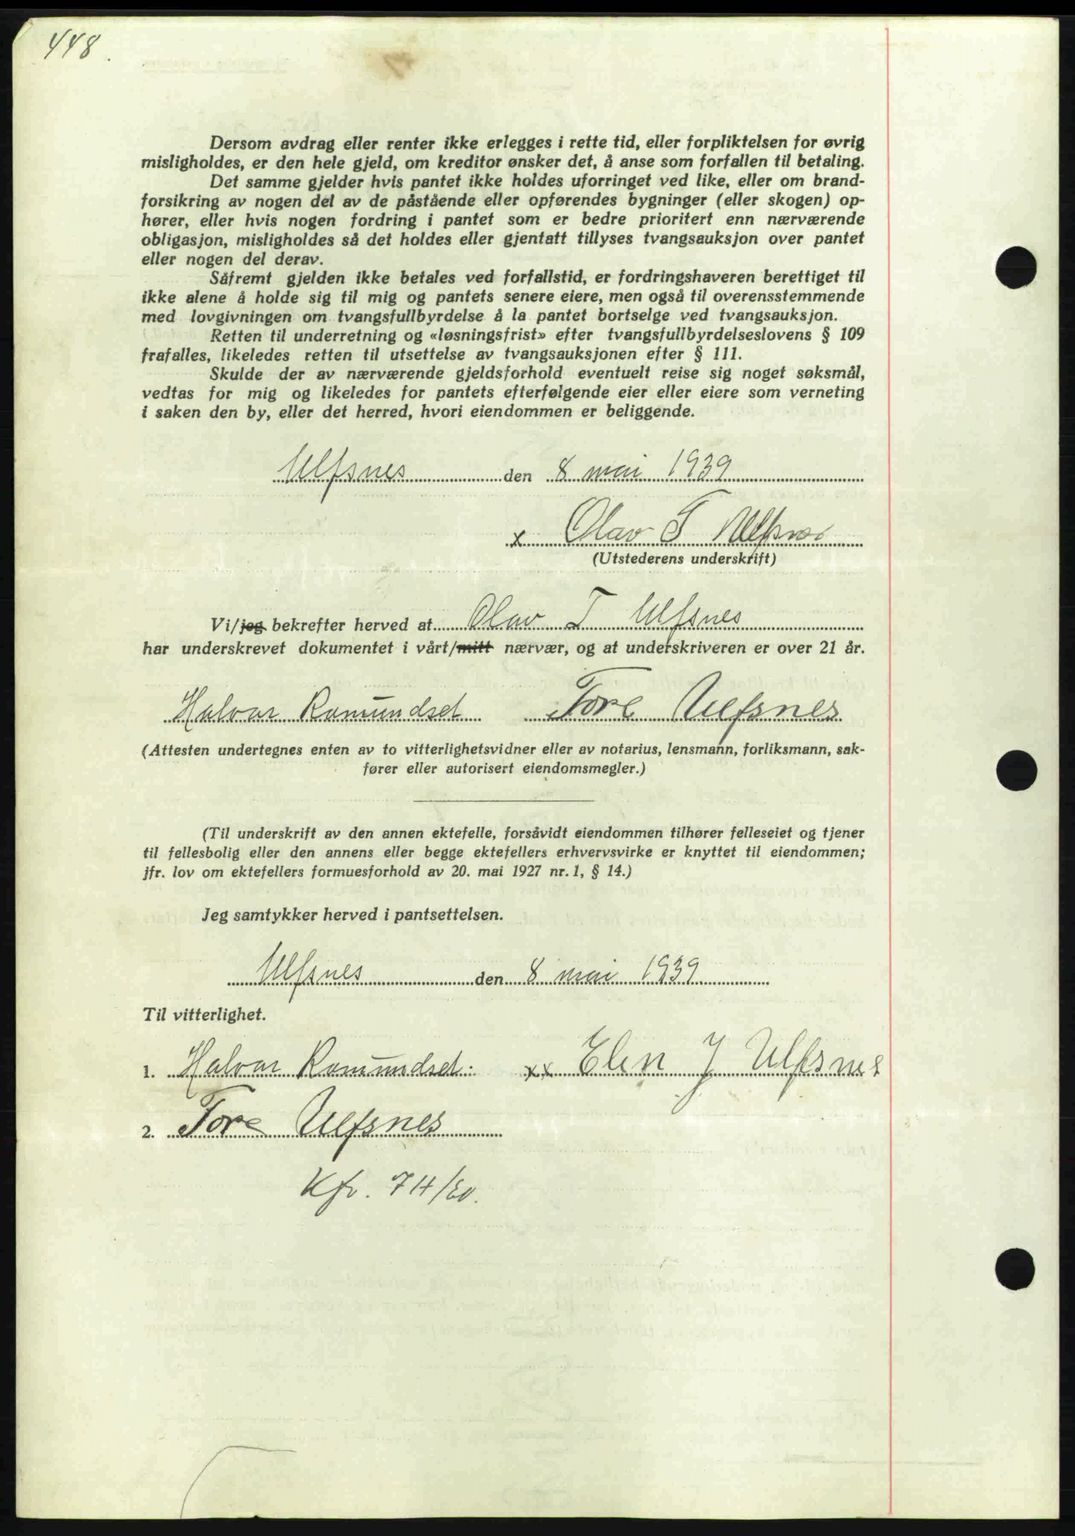 448.
Dersom avdrag eller renter ikke erlegges i rette tid, eller forpliktelsen for øvrig
misligholdes, er den hele gjeld, om kreditor ønsker det, å anse som forfallen til betaling.
Det samme gjelder hvis pantet ikke holdes uforringet ved like, eller om brand-
forsikring av nogen del av de påstående eller opførendes bygninger (eller skogen) op-
hører, eller hvis nogen fordring i pantet som er bedre prioritert enn nærværende
obligasjon, misligholdes så det holdes eller gjentatt tillyses tvangsauksjon over pantet
eller nogen del derav.
Såfremt gjelden ikke betales ved forfallstid, er fordringshaveren berettiget til
ikke alene å holde sig til mig og pantets senere eiere, men også til overensstemmende
med lovgivningen om tvangsfullbyrdelse å la pantet bortselge ved tvangsauksjon.
Retten til underretning og «løsningsfrist» efter tvangsfullbyrdelseslovens § 109
frafalles, likeledes retten til utsettelse av tvangsauksjonen efter § 111.
Skulde der av nærværende gjeldsforhold eventuelt reise sig noget søksmål,
vedtas for mig og likeledes for pantets efterfølgende eier eller eiere som verneting
i saken den by, eller det herred, hvori eiendommen er beliggende.
Ulfsnes den 8 mai 1939
x Olav T Ulfsnes
(Utstederens underskrift)
Vi/jeg bekrefter herved at Olav T Ulfsnes
har underskrevet dokumentet i vårt/mitt nærvær, og at underskriveren er over 21 år.
Halvar Ramundset Tore Ulfsnes
(Attesten undertegnes enten av to vitterlighetsvidner eller av notarius, lensmann, forliksmann, sak-
fører eller autorisert eiendomsmegler.)
(Til underskrift av den annen ektefelle, forsåvidt eiendommen tilhører felleseiet og tjener
til fellesbolig eller den annens eller begge ektefellers erhvervsvirke er knyttet til eiendommen;
jfr. lov om ektefellers formuesforhold av 20. mai 1927 nr. 1, § 14.)
Jeg samtykker herved i pantsettelsen.
Ulfsnes den 8 mai 1939
Til vitterlighet.
1. Halvar Ramundset. xx Elen J Ulfsnes
2. Tore Ulfsnes
Kfr. 74/